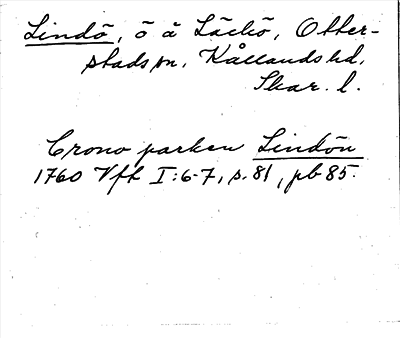 Lindö, ö ä Läckö, Otter-
stads sn, Kållands hd,
Skar. l.
Crono parken Lindön
1760 Vfh I:6-7, s. 81, pb 85.